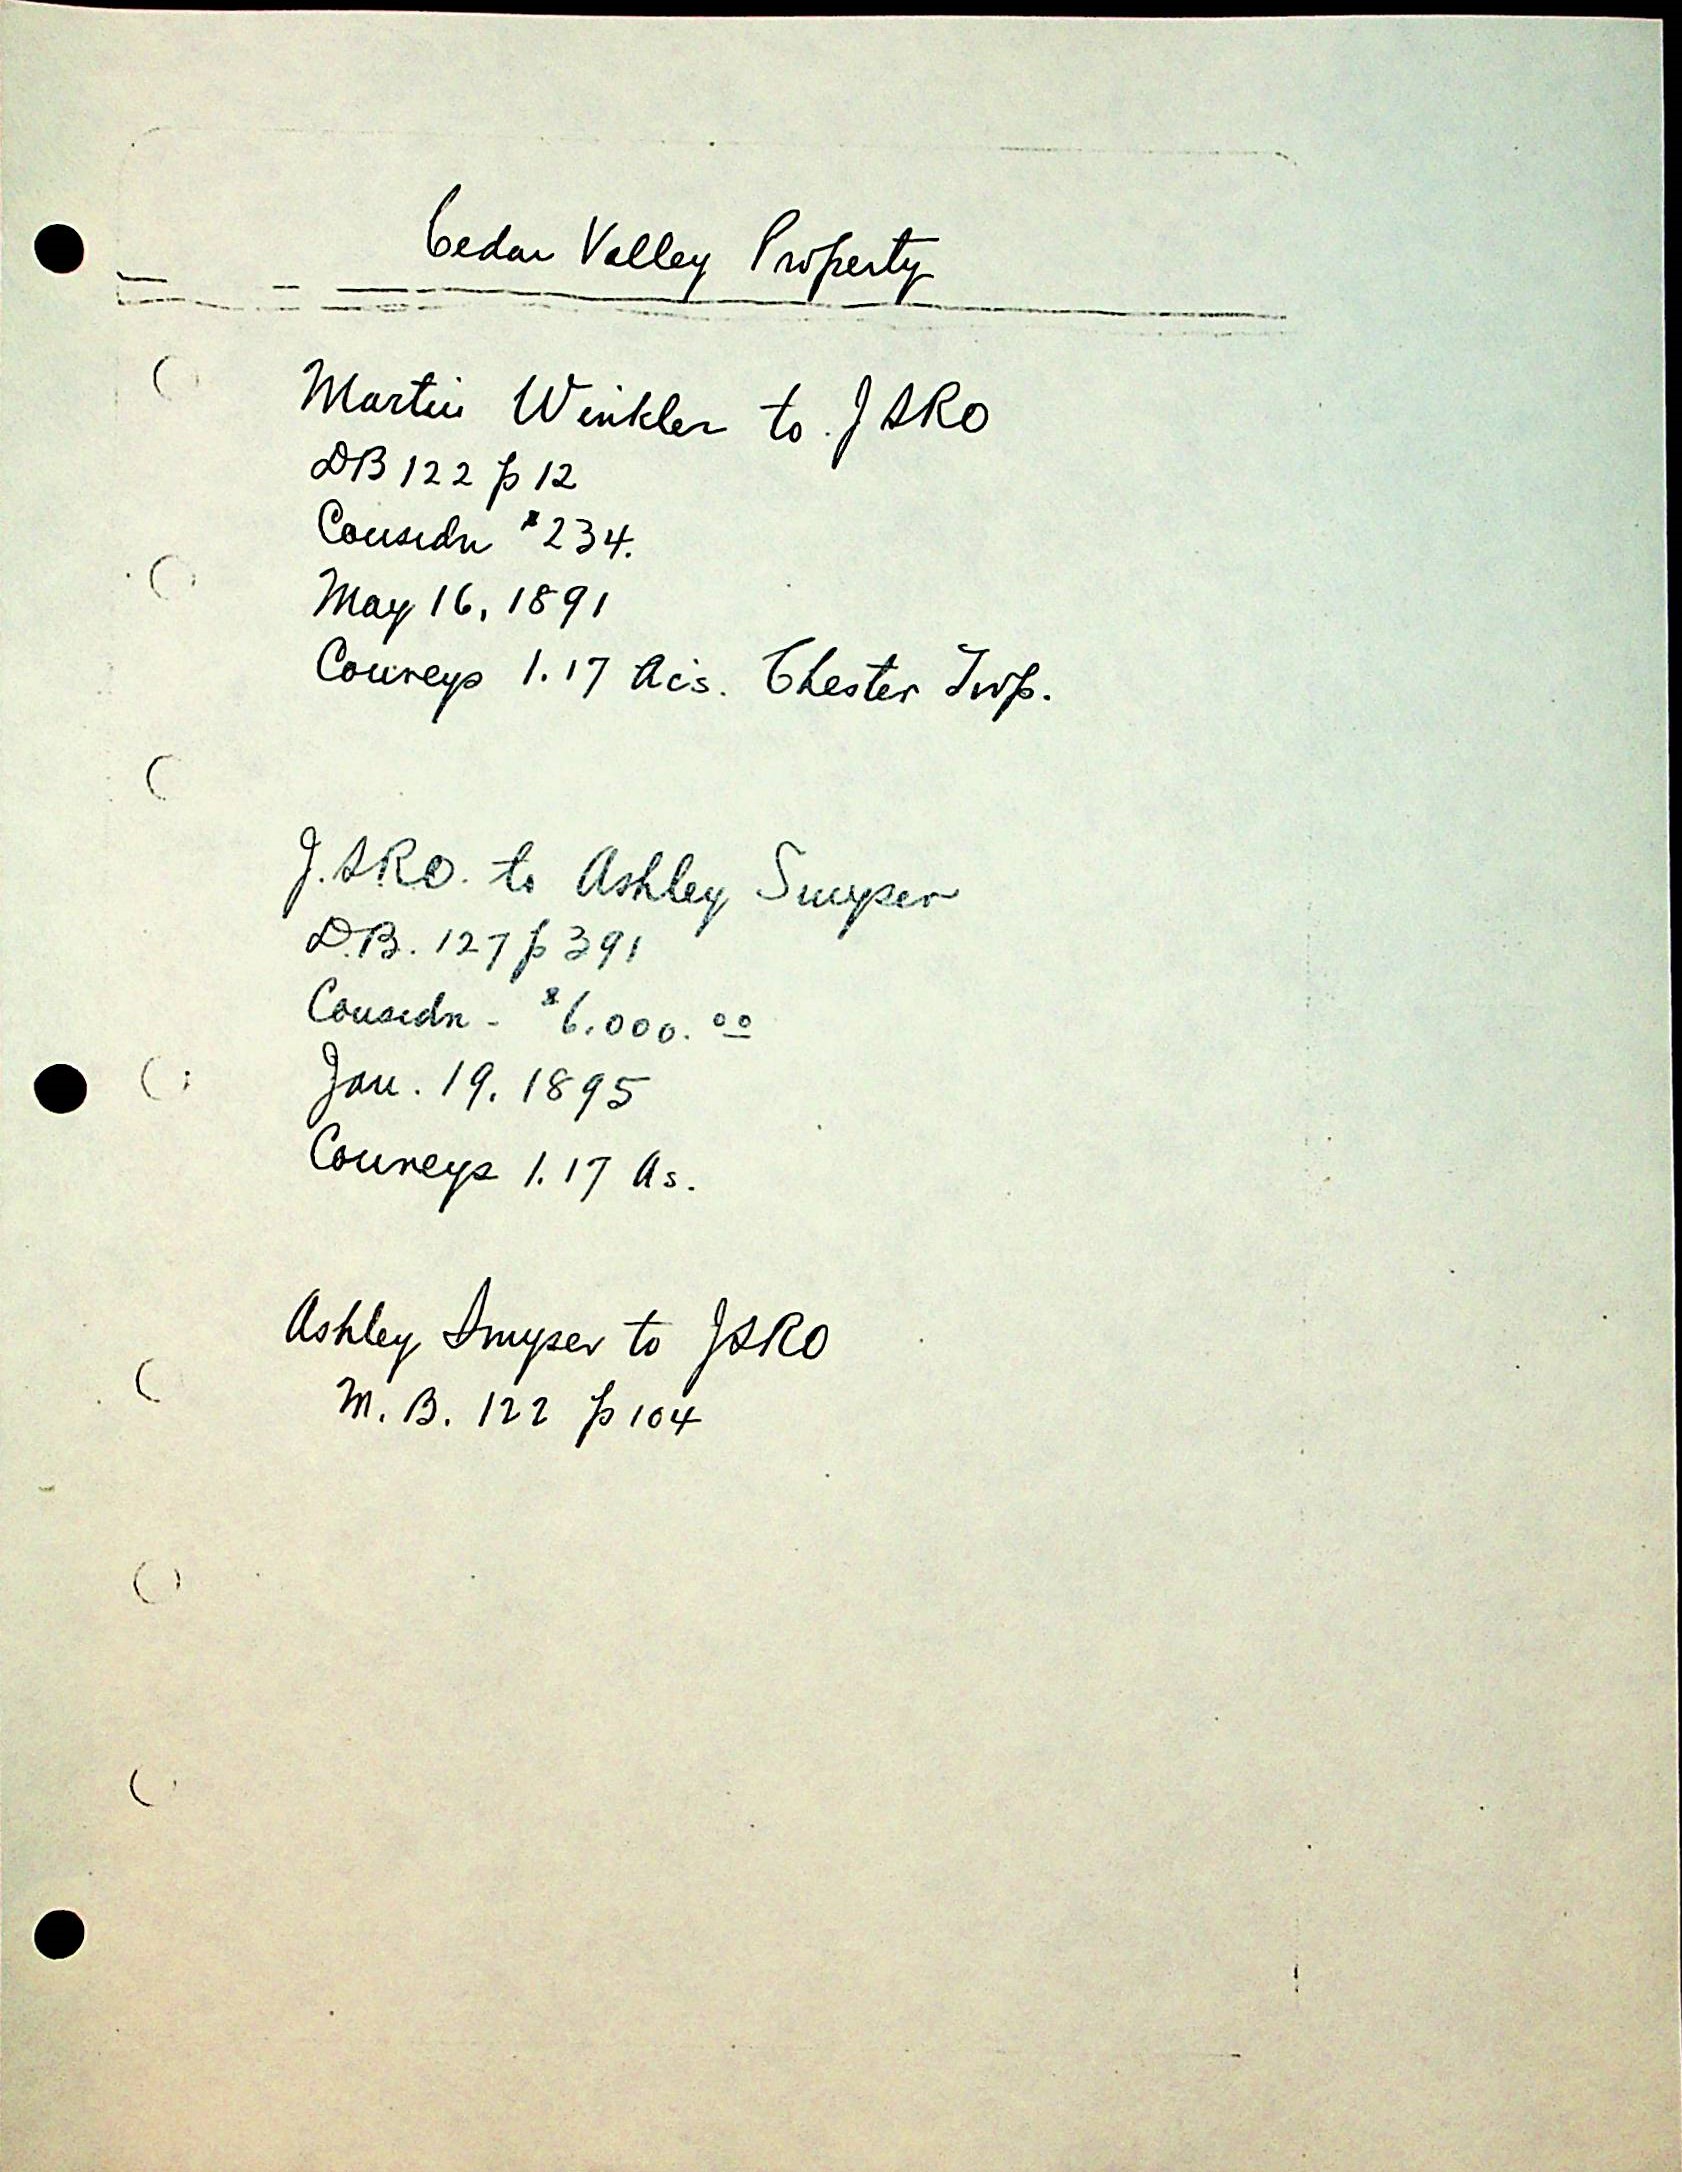 Cedar Valley Property
Martin Winkler to JSRO
DB 122 p 12
Considn $234.
May 16, 1891
Conveys 1.17 Acs. Chester Twp.
J.SRO. to Ashley Smyser
D.B. 127 p 391
Considn - $6,000.00
Jan. 19, 1895
Conveys 1.17 As.
Ashley Smyser to JSRO
M. B. 122 p 104